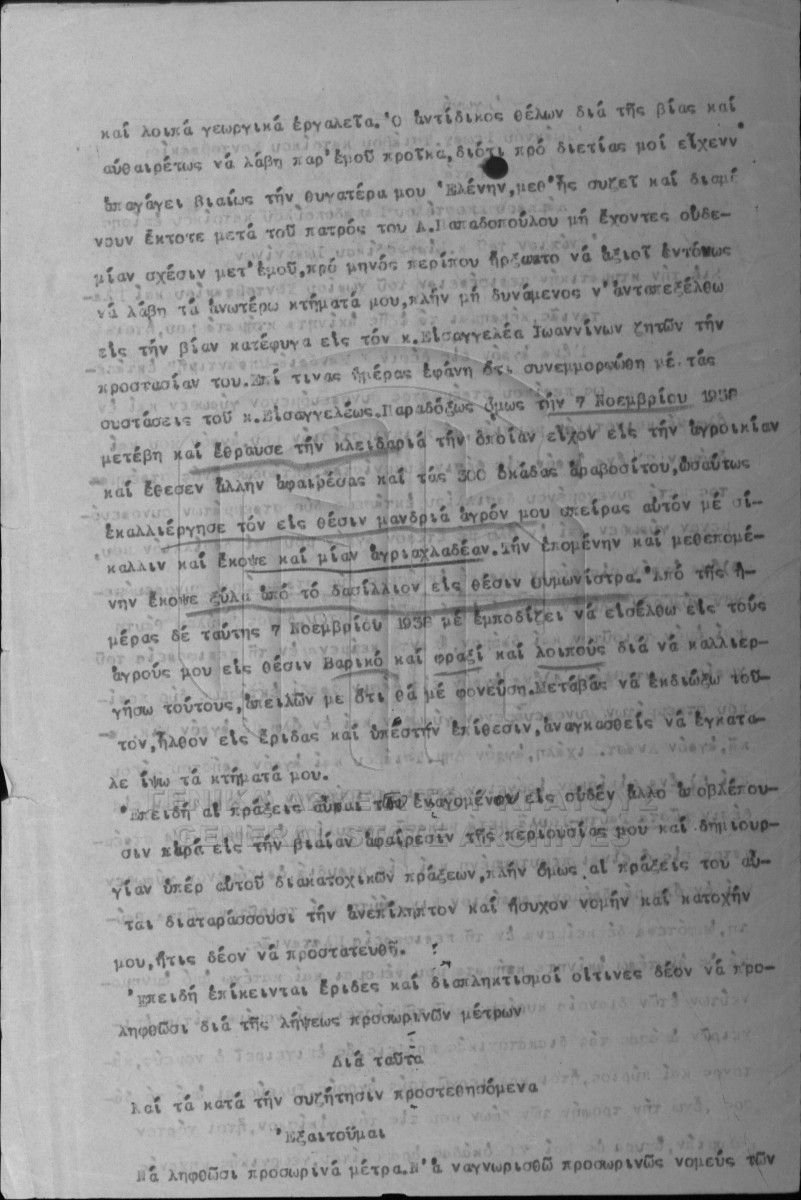 καί λοιπά γεωργικά ἐργαλεῖα.Ὁ ἀντίδικος θέλων διά τῆς βίας καί
αὐθαιρέτως νά λάβη παρ'ἐμοῦ προῖκα,διότι πρό διετίας μοί εἶχενν
ἀπαγάγει βιαίως τήν θυγατέρα μου Ἑλένην,μεθ'ἧς συζεῖ καί διαμέ
νουν ἔκτοτε μετά τοῦ πατρός του Α.Παπαδοπούλου μή ἔχοντες οὐδε-
μίαν σχέσιν μετ'ἐμοῦ,πρό μηνός περίπου ἤρξαντο νά ἀξιοῖ ἐντόνως
νά λάβη τά ἀνωτέρω κτήματά μου,πλήν μή δυνάμενος ν'ἀνταπεξέλθω
εἰς τήν βίαν κατέφυγα εἰς τόν κ.Εἰσαγγελέα Ἰωαννίνων ζητῶν τήν
προστασίαν του.Ἐπί τινας ἡμέρας ἐφάνη ὅτι συνεμμορφώθη μέ τάς
συστάσεις τοῦ κ.Εἰσαγγελέως.Παραδόξως ὅμως τήν 7 Νοεμβρίου 1938
μετέβη καί ἔθραυσε τήν κλειδαριά τήν ὁποίαν εἶχον εἰς τήν ἀγροικίαν
καί ἔθεσεν ἄλλην ἀφαιρέσας καί τάς 300 ὀκάδας ἀραβοσίτου,ὡσαύτως
ἐκαλλιέργησε τόν εἰς θέσιν μανδριά ἀγρόν μου σπείρας αὐτόν μέ σί-
καλλιν καί ἔκοψε καί μίαν ἀγριαχλαδέαν.Τήν ἑπομένην καί μεθεπομέ-
νην ἔκοψε ξύλα ἀπό τό δασίλλιον εἰς θέσιν συμωνίστρα.Ἀπό τῆς ἡ-
μέρας δέ ταύτης 7 Νοεμβρίου 1938 μέ ἐμποδίζει νά εἰσέλθω εἰς τούς
ἀγρούς μου εἰς θέσιν Βαρικό καί φραξί καί λοιπούς διά νά καλλιερ-
γήσω τούτους,ἀπειλῶν με ὅτι θά μέ φονεύση.Μεταβάς νά ἐκδιώξω τοῦ-
τον,ἦλθον εἰς ἔριδας καί ὑπέστην ἐπίθεσιν,ἀναγκασθείς νά ἐγκατα-
λε ίψω τά κτήματά μου.
Ἐπειδή αἱ πράξεις αὗται τῶν ἐναγομένων εἰς οὐδέν ἄλλο ἀποβλέπου-
σιν παρά εἰς τήν βιαίαν ἀφαίρεσιν τῆς περιουσίας μου καί δημιουρ-
γίαν ὑπέρ αὐτοῦ διακατοχικῶν πράξεων,πλήν ὅμως αἱ πράξεις του αὗ-
ται διαταράσσουσι τήν ἀνεπίληπτον καί ἥσυχον νομήν καί κατοχήν
μου,ἥτις δέον νά προστατευθῆ.
Ἐπειδή ἐπίκεινται ἔριδες καί διαπληκτισμοί οἵτινες δέον νά προ-
ληφθῶσι διά τῆς λήψεως προσωρινῶν μέτρων
Διά ταῦτα
Καί τά κατά τήν συζήτησιν προστεθησόμενα
Ἐξαιτοῦμαι
Νά ληφθῶσι προσωρινά μέτρα.Ν'ἀ ναγνωρισθῶ προσωρινῶς νομεύς τῶν
ΓΕΝΙΚΑ ΑΡΧΕΙΑ ΤΟΥ ΚΡΑΤΟΥΣ
GENERAL STATE ARCHIVES